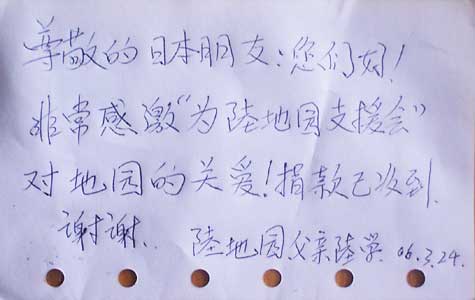 尊敬的日本朋友:您们好!
非常感激“为陸地园支援会”
对地园的关爱!捐款已收到.
谢谢. 陸地园父亲陸学. 06.3.24.